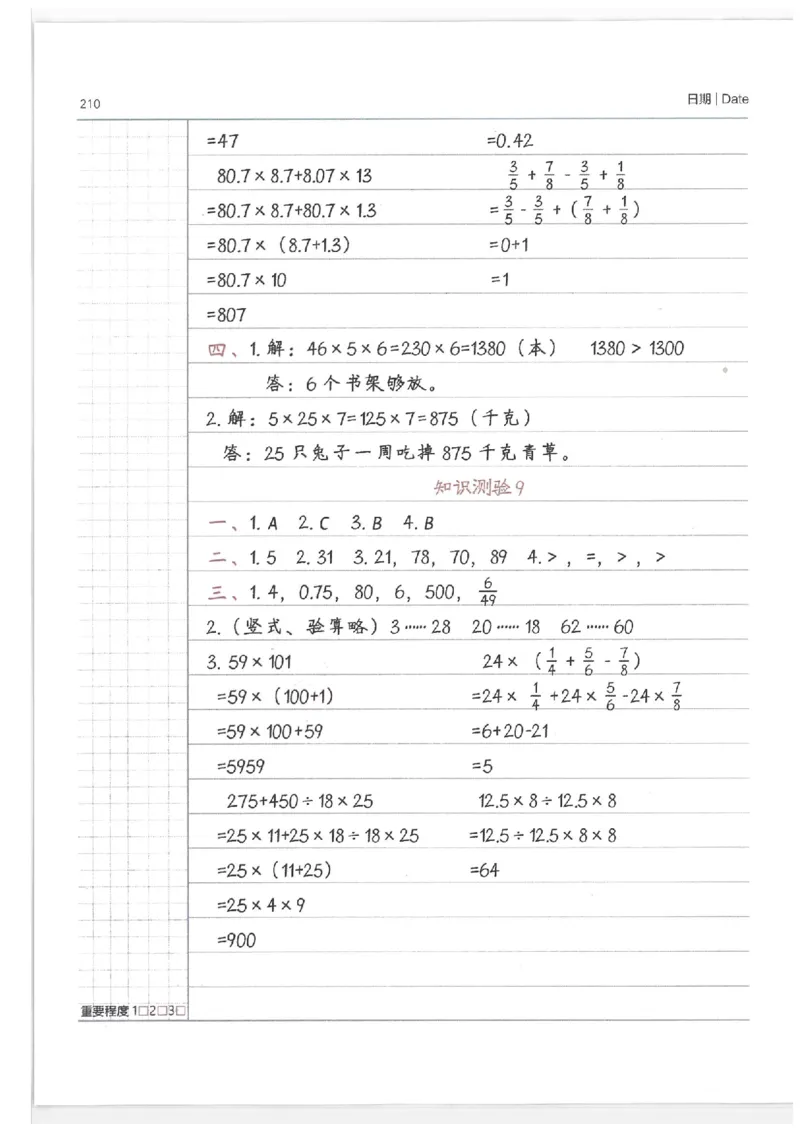 210 日期 | Date
=47 =0.42
80.7×8.7+8.07×13 3/5 + 7/8 - 3/5 + 1/8
=80.7×8.7+80.7×1.3 = 3/5 - 3/5 + (7/8 + 1/8)
=80.7×(8.7+1.3) =0+1
=80.7×10 =1
=807
四、1.解：46×5×6=230×6=1380（本） 1380 > 1300
答：6个书架够放。
2.解：5×25×7=125×7=875（千克）
答：25只兔子一周吃掉875千克青草。
知识测验9
一、1.A 2.C 3.B 4.B
二、1.5 2.31 3.21，78，70，89 4.>，=，>，>
三、1.4，0.75，80，6，500，6/49
2.（竖式、验算略）3……28 20……18 62……60
3.59×101 24×（1/4 + 5/6 - 7/8）
=59×（100+1） =24× 1/4 +24× 5/6 -24× 7/8
=59×100+59 =6+20-21
=5959 =5
275+450÷18×25 12.5×8÷12.5×8
=25×11+25×18÷18×25 =12.5÷12.5×8×8
=25×（11+25） =64
=25×4×9
=900
重要程度 1□2□3□